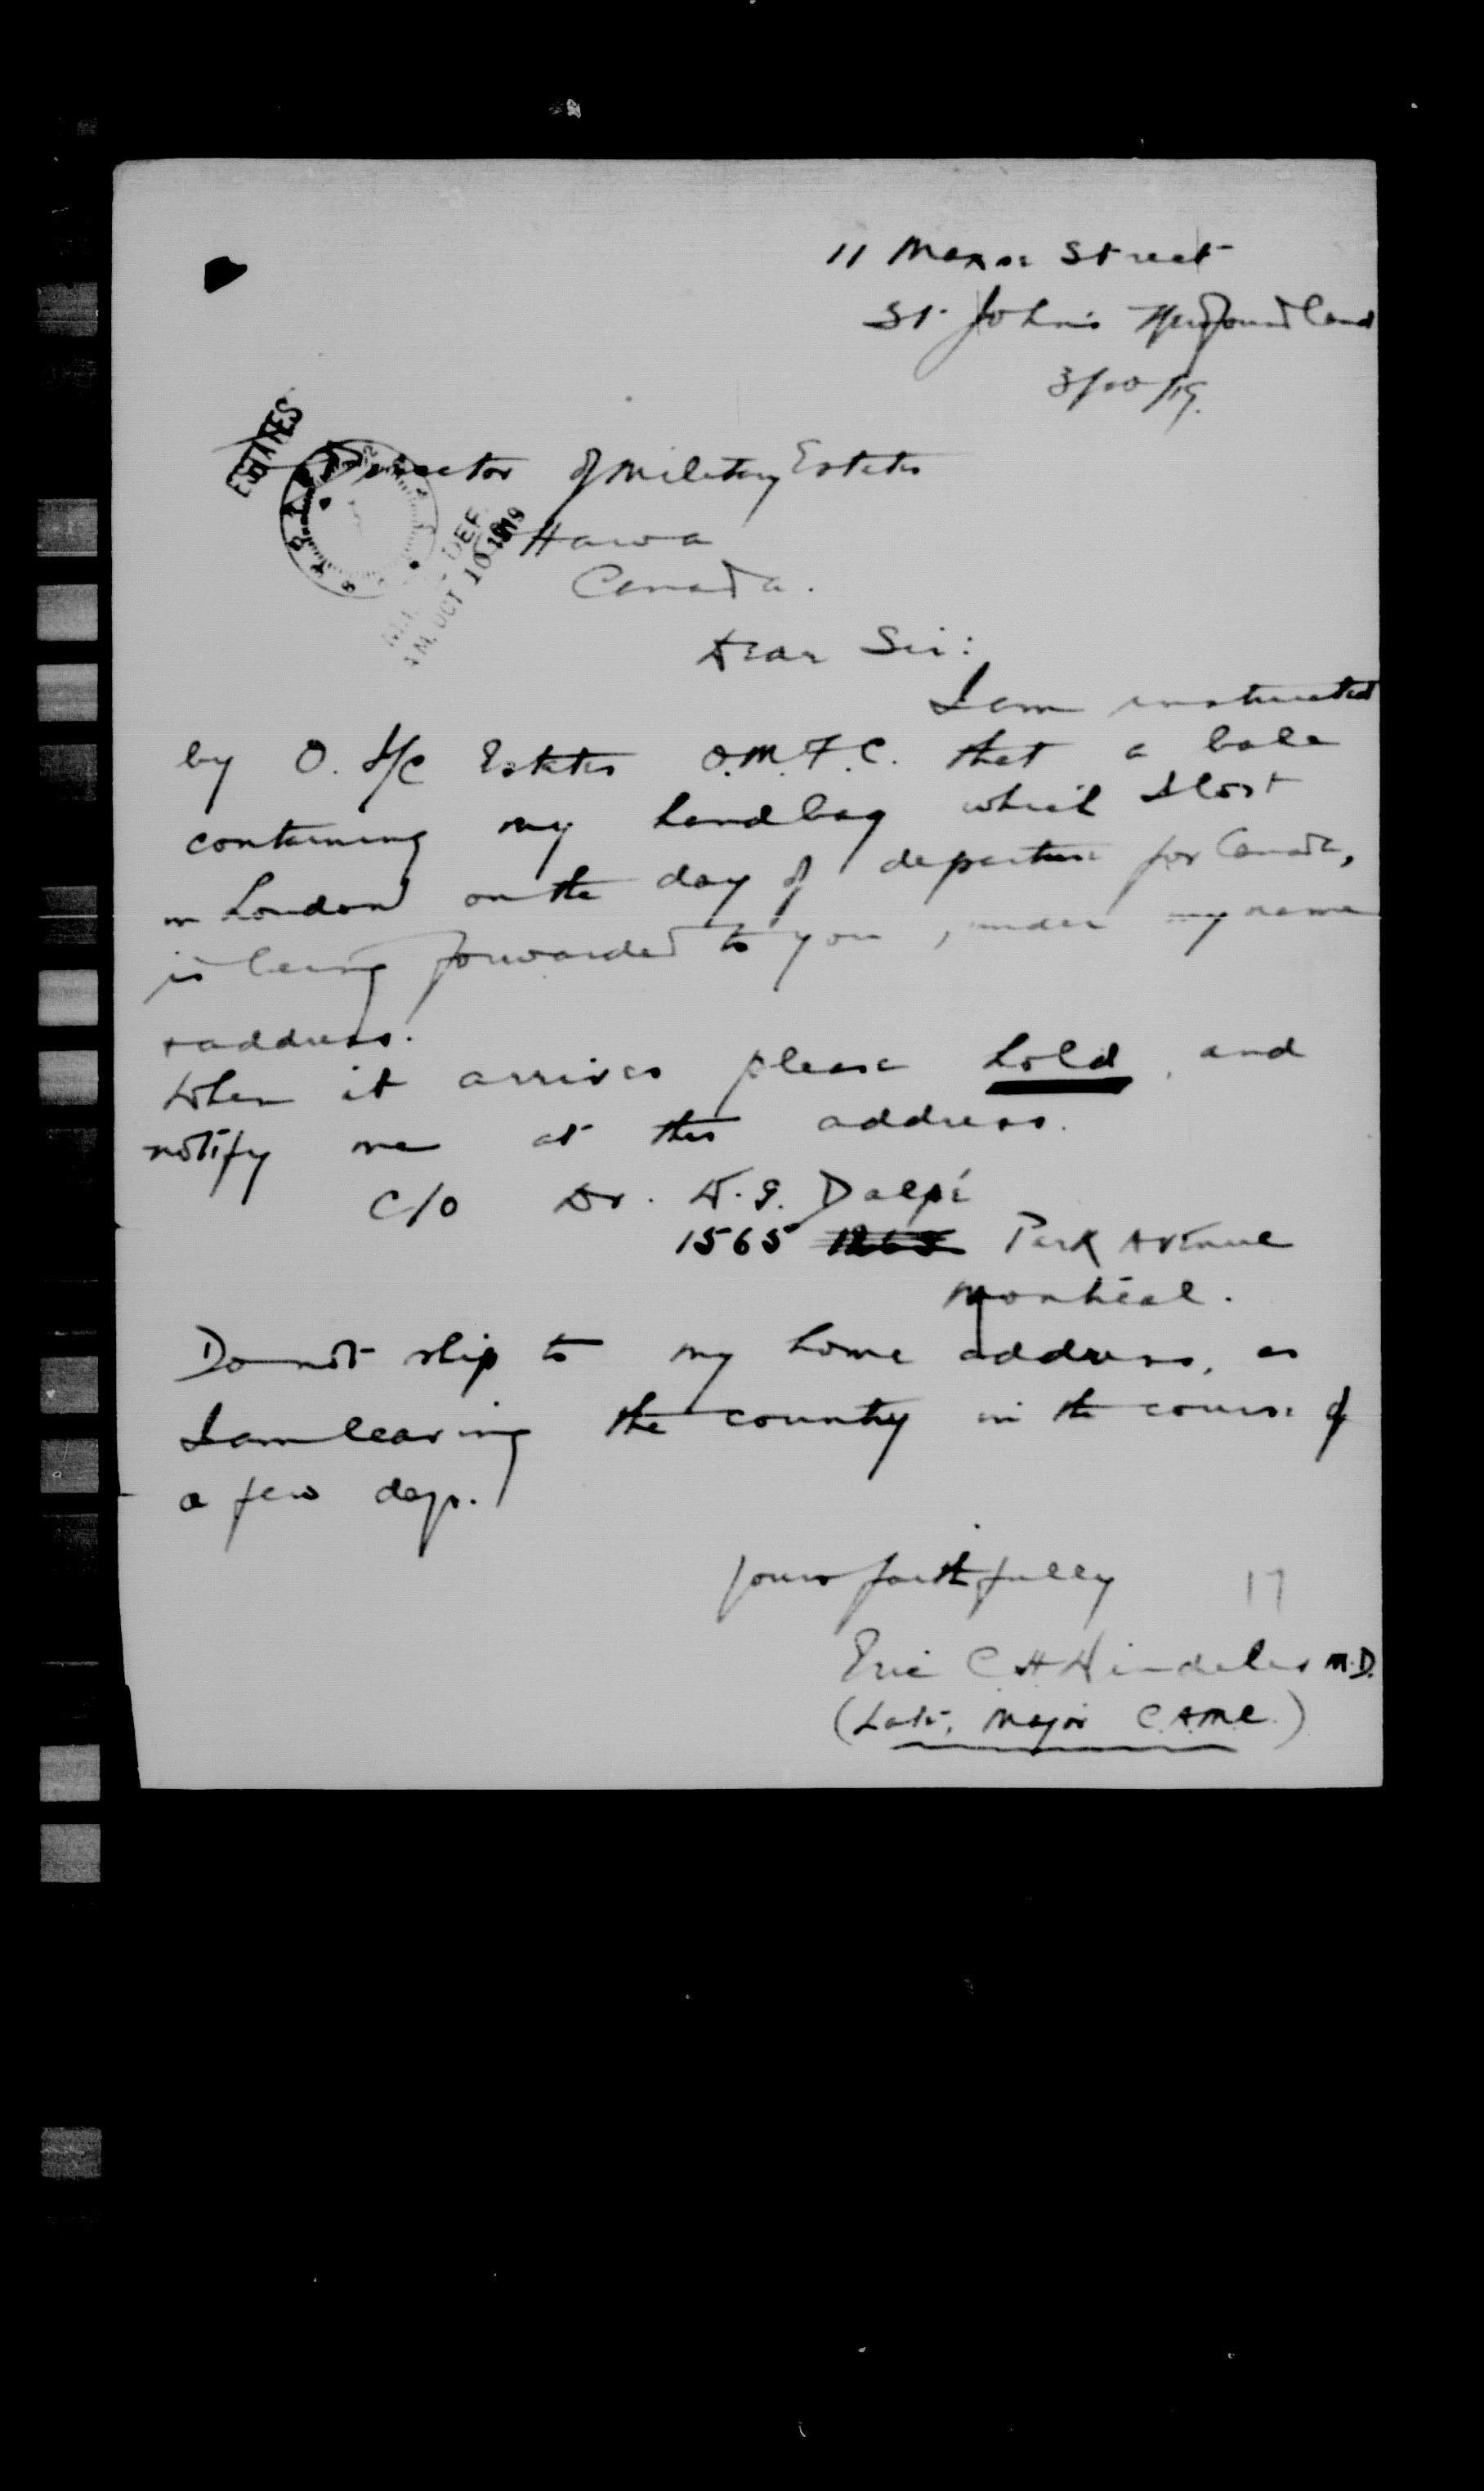 11 Manor Street
St. John's Newfoundland
3/10/19.
ESTATES
Director of Military Estates
Ottawa
Canada.
OCT 10 1919
Dear Sir:
I am instructed
by O. I/c Estates O.M.F.C. that a bale
containing my handbag which I lost
in London on the day of departure for Canada,
is being forwarded to you, under my name
+ address.
When it arrives please hold, and
notify me at this address.
c/o Dr. W.G. Dalpé
1565 1265 Park Avenue
Montreal.
Do not ship to my home address, as
I am leaving the country in the course of
a few days.
Yours faithfully
17
Eric C H M.D.
(Late, Major C.A.M.C.)